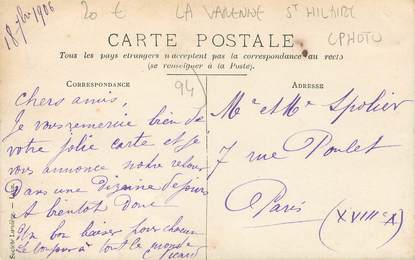 18 7bre 1906
20 €
LA VARENNE ST HILAIRE
CPHOTO
CARTE POSTALE
Tous les pays étrangers n'acceptent pas la correspondance au recto
(se renseigner à la Poste).
CORRESPONDANCE
94
Chers amis,
Je vous remercie bien de
votre jolie carte et je
vous annonce notre retour
Dans une Dizaine de jours
A bientôt Donc
Un bon baiser pour chacun
Le bonjour à tout le monde
Picard
ADRESSE
Mr et Mme Spolier
7 rue Poulet
Paris
(XVIIIe A)